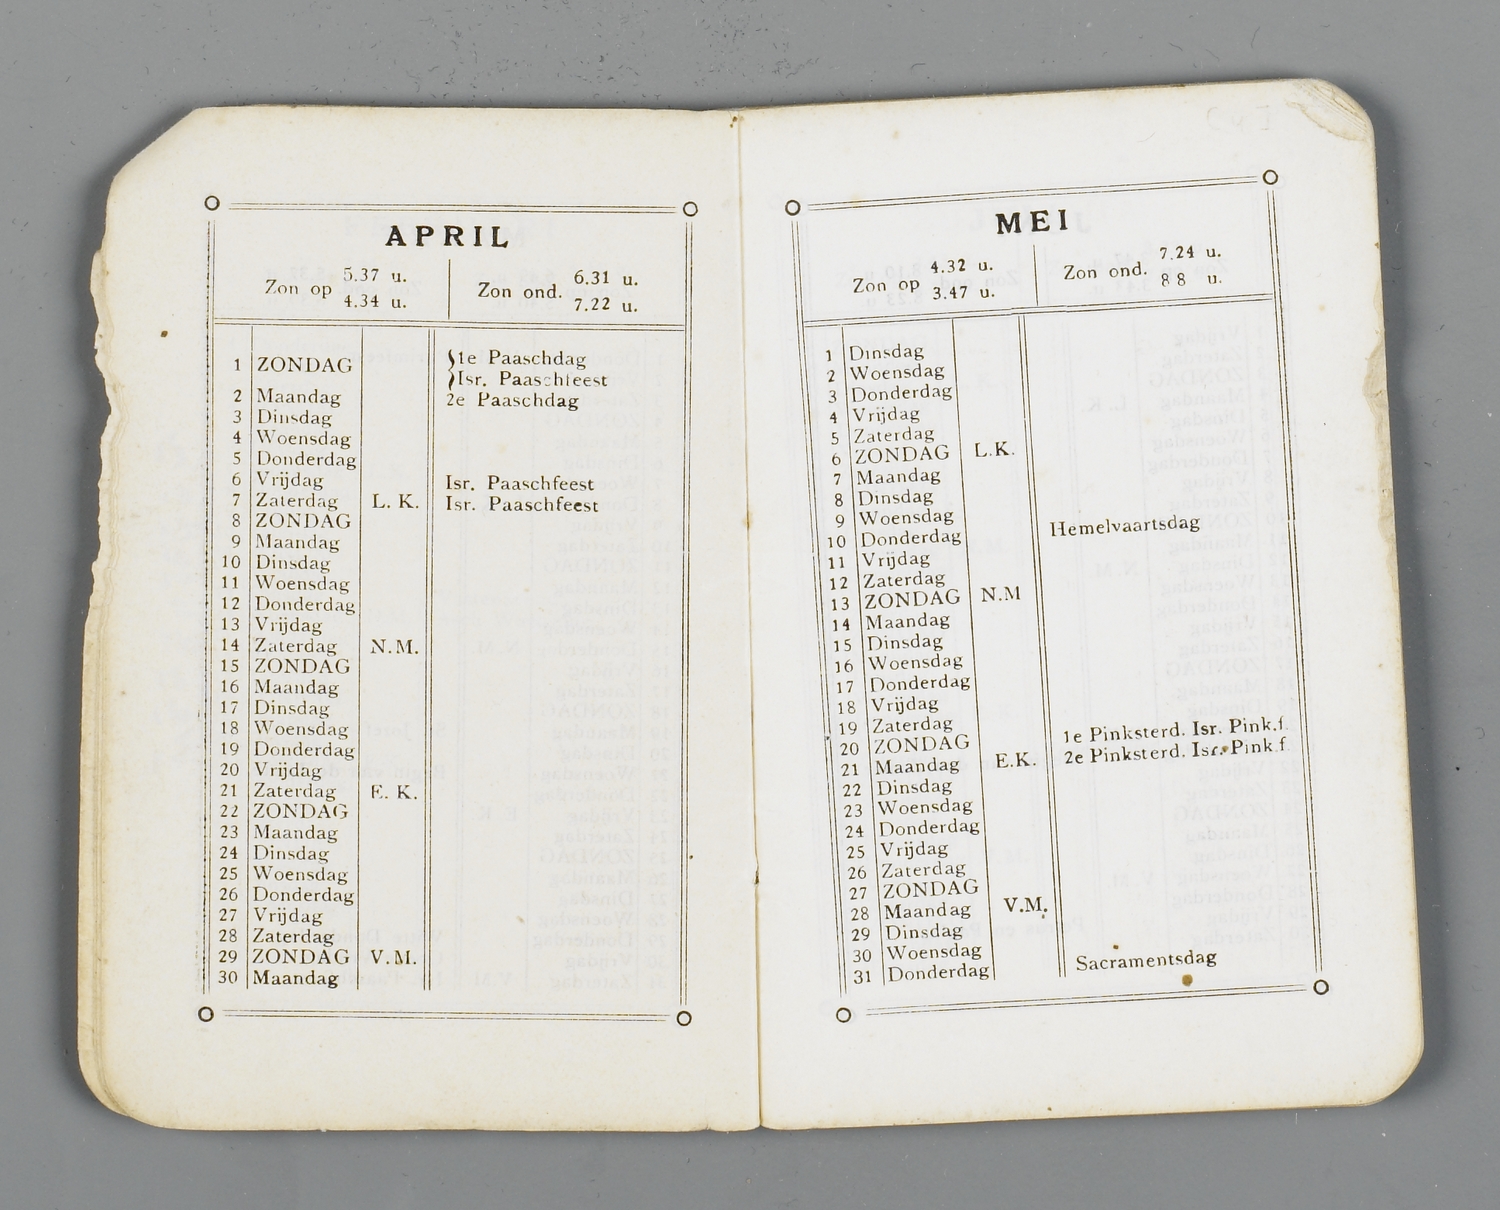 APRIL
Zon op 5.37 u. 4.34 u.
Zon ond. 6.31 u. 7.22 u.
1 ZONDAG 1e Paaschdag
Isr. Paaschfeest
2 Maandag 2e Paaschdag
3 Dinsdag
4 Woensdag
5 Donderdag
6 Vrijdag Isr. Paaschfeest
7 Zaterdag L. K. Isr. Paaschfeest
8 ZONDAG
9 Maandag
10 Dinsdag
11 Woensdag
12 Donderdag
13 Vrijdag
14 Zaterdag N.M.
15 ZONDAG
16 Maandag
17 Dinsdag
18 Woensdag
19 Donderdag
20 Vrijdag
21 Zaterdag E. K.
22 ZONDAG
23 Maandag
24 Dinsdag
25 Woensdag
26 Donderdag
27 Vrijdag
28 Zaterdag
29 ZONDAG V.M.
30 Maandag
MEI
Zon op 4.32 u. 3.47 u.
Zon ond. 7.24 u. 8 8 u.
1 Dinsdag
2 Woensdag
3 Donderdag
4 Vrijdag
5 Zaterdag
6 ZONDAG L.K.
7 Maandag
8 Dinsdag
9 Woensdag
10 Donderdag Hemelvaartsdag
11 Vrijdag
12 Zaterdag
13 ZONDAG N.M
14 Maandag
15 Dinsdag
16 Woensdag
17 Donderdag
18 Vrijdag
19 Zaterdag
20 ZONDAG 1e Pinksterd. Isr. Pink.f.
21 Maandag E.K. 2e Pinksterd. Isr. Pink.f.
22 Dinsdag
23 Woensdag
24 Donderdag
25 Vrijdag
26 Zaterdag
27 ZONDAG
28 Maandag V.M.
29 Dinsdag
30 Woensdag
31 Donderdag Sacramentsdag